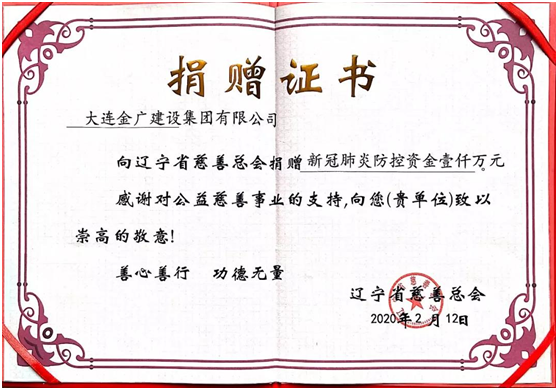 捐赠证书
大连金广建设集团有限公司
向辽宁省慈善总会捐赠新冠肺炎防控资金壹仟万元
感谢对公益慈善事业的支持,向您(贵单位)致以
崇高的敬意!
善心善行 功德无量
辽宁省慈善总会
2020年2月12日